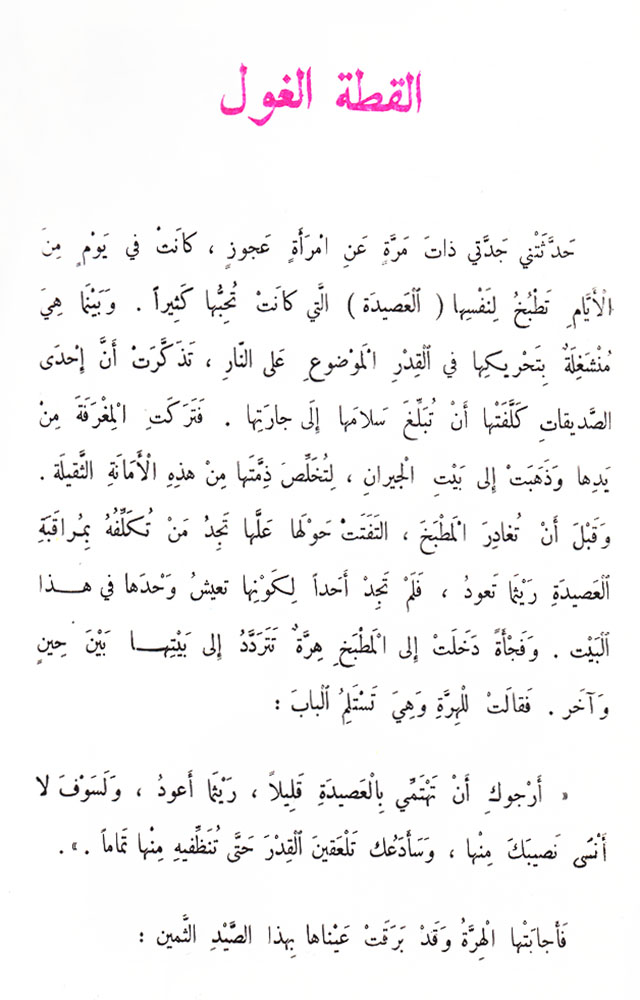 القطة الغول
حَدَّثَتْني جَدَّتي ذاتَ مَرَّةٍ عَنِ امْرَأَةٍ عَجوزٍ ، كانَتْ في يَوْمٍ مِنَ
الْأَيَّامِ تَطْبُخُ لِنَفْسِها ( الْعَصيدَة ) الَّتي كانَتْ تُحِبُّها كَثيراً . وَبَيْنَما هِيَ
مُنْشَغِلَةٌ بِتَحْريكِها في الْقِدْرِ الْمَوْضوعِ عَلى النّارِ ، تَذَكَّرَتْ أَنَّ إِحْدَى
الصَّديقاتِ كَلَّفَتْها أَنْ تُبَلِّغَ سَلامَها إِلَى جارَتِها . فَتَرَكَتِ الْمِغْرَفَةَ مِنْ
يَدِها وَذَهَبَتْ إِلى بَيْتِ الْجيرانِ ، لِتُخَلِّصَ ذِمَّتَها مِنْ هذِهِ الْأَمانَةِ الثَّقيلَة .
وَقَبْلَ أَنْ تُغادِرَ الْمَطْبَخَ ، التَفَتَتْ حَوْلَها عَلَّها تَجِدُ مَنْ تُكَلِّفُهُ بِمُراقَبَةِ
الْعَصيدَةِ رَيْثَما تَعودُ ، فَلَمْ تَجِدْ أَحَداً لِكَوْنِها تعيشُ وَحْدَها في هـذا
الْبَيْت . وَفَجْأَةً دَخَلَتْ إِلى الْمَطْبَخِ هِرَّةٌ تَتَرَدَّدُ إِلى بَيْتِهـا بَيْنَ حينٍ
وَآخَر . فَقالَتْ لِلْهِرَّةِ وَهِيَ تَسْتَلِمُ الْبابَ :
« أَرْجوكِ أَنْ تَهْتَمّي بِالْعَصيدَةِ قَليلاً ، رَيْثَما أَعودُ ، وَلَسَوْفَ لا
أَنْسَى نَصيبَكَ مِنْها ، وَسَأَدَعُك تَلْعَقينَ الْقِدْرَ حَتَّى تُنَظِّفيهِ مِنْها تَماماً .» .
فَأَجابَتْها الْهِرَّةُ وَقَدْ بَرَقَتْ عَيْناها بِهذا الصَّيْدِ الثَّمين :